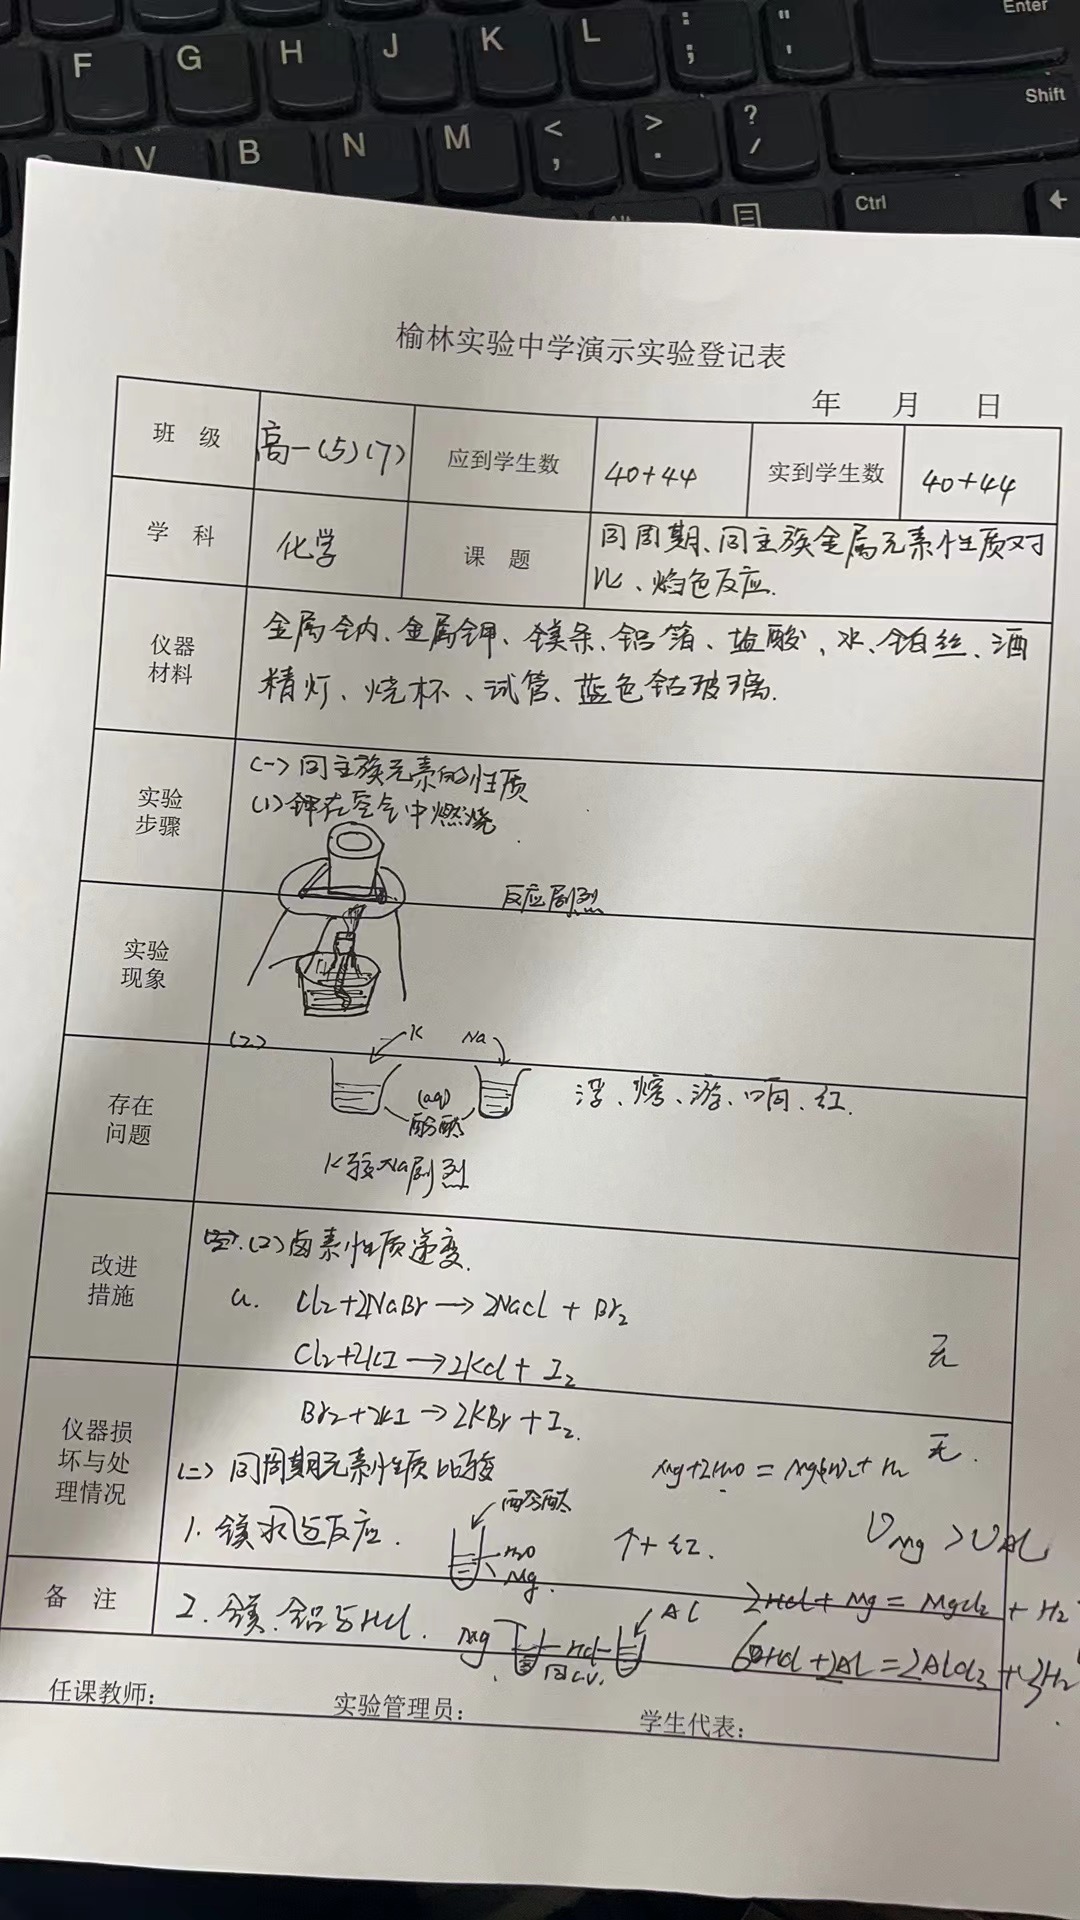 Enter
F G H J K L : ; " '
Shift
V B N M < , > . ? /
Ctrl
榆林实验中学演示实验登记表
年 月 日
班 级 高一(5)(7) 应到学生数 40+44 实到学生数 40+44
学 科 化学 课 题 同周期、同主族金属元素性质对
比、焰色反应.
仪器材料 金属钠、金属钾、镁条、铝箔、盐酸、水、铂丝、酒
精灯、烧杯、试管、蓝色钴玻璃.
实验步骤 (一)同主族元素的性质
(1)钾在空气中燃烧
反应剧烈
实验现象
(2) K Na
存在问题 (aq) 浮、熔、游、响、红.
酚酞
K较Na剧烈
改进措施 (2)卤素性质递变.
a. Cl₂+2NaBr→2NaCl+Br₂
Cl₂+2KI→2KCl+I₂ 无
仪器损坏与处理情况 Br₂+2KI→2KBr+I₂. 无.
(二)同周期元素性质比较 Mg+2H₂O=Mg(OH)₂+H₂
酚酞
1.镁水与反应. H₂O ↑+红. υMg>υAl
Mg.
备 注 2HCl+Mg=MgCl₂+H₂↑
2.镁、铝与HCl. Mg HCl Al
同C.V. 6HCl+2Al=2AlCl₃+3H₂↑
任课教师: 实验管理员: 学生代表: